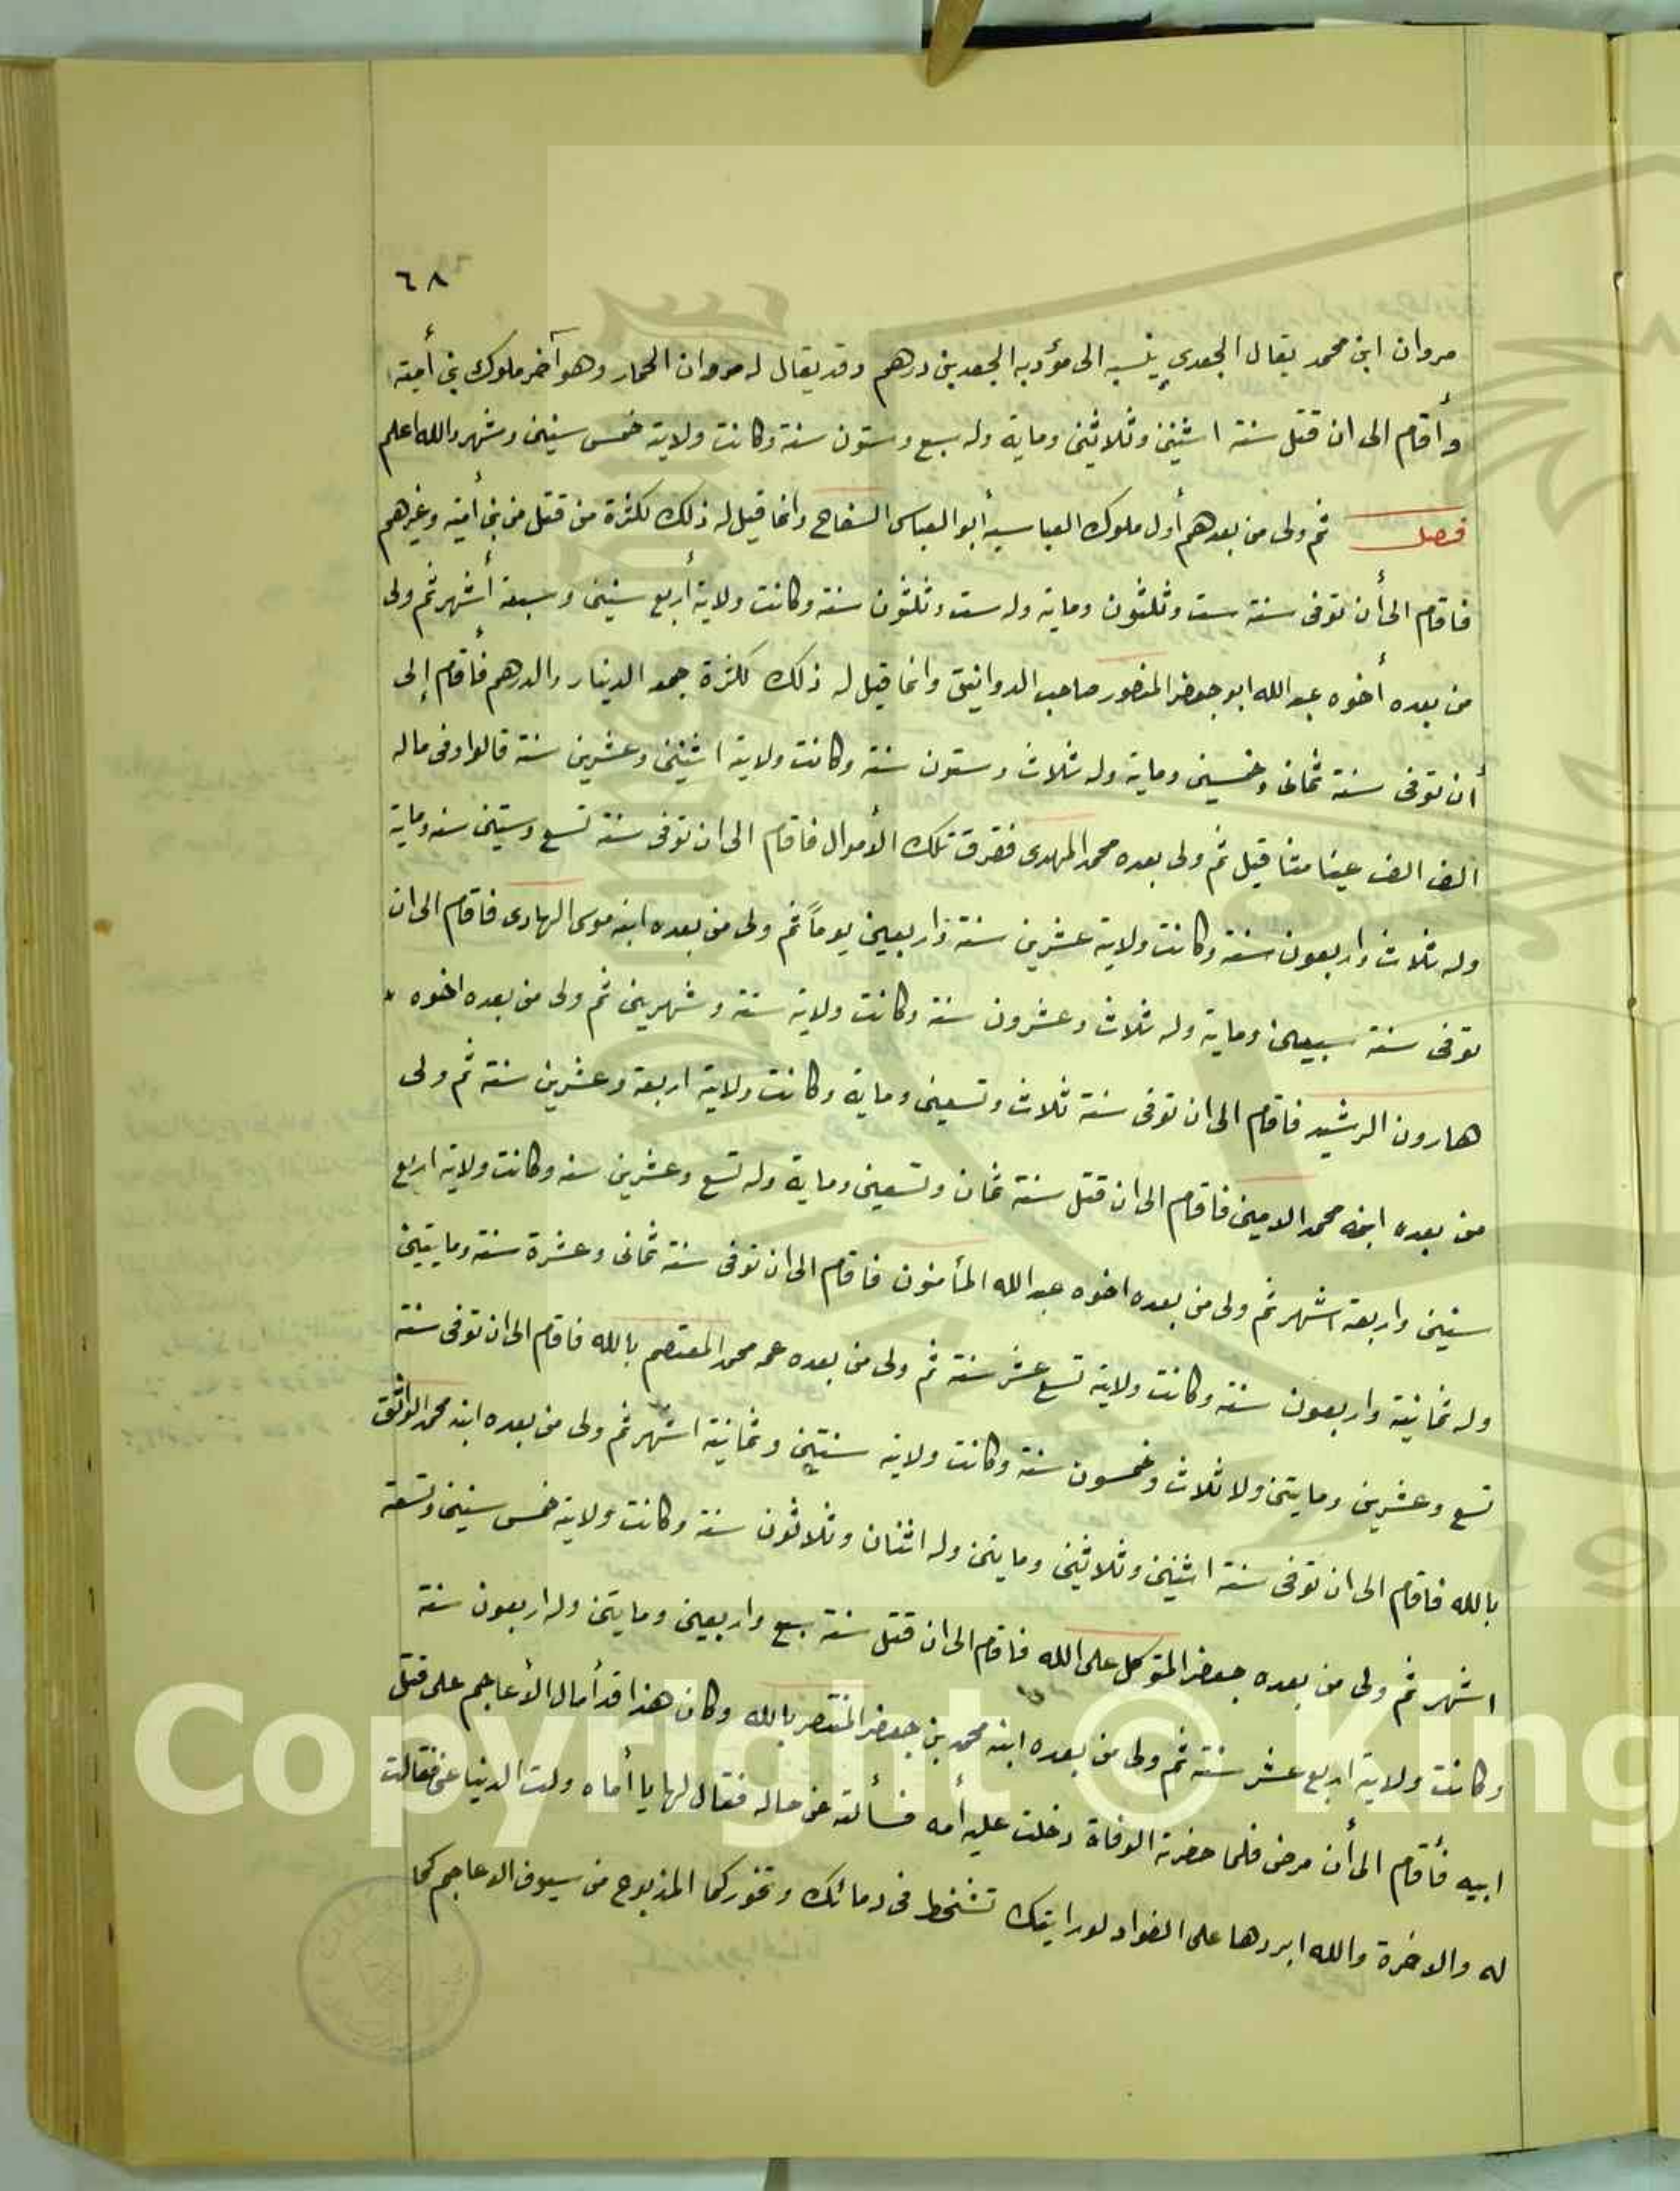 ٦٨
مروان ابن محمد يقال الجعدي ينسبه الى مؤدبه الجعد بن درهم وقد يقال له مروان الحمار وهو آخر ملوك بني أمية
وأقام الى ان قتل سنة اثنين وثلاثين وماية وله سبع وستون سنة وكانت ولايته خمس سنين وشهر والله اعلم
فصل ثم ولى من بعدهم أول ملوك العباسية أبو العباس السفاح وانما قيل له ذلك لكثرة من قتل من بني أمية وغيرهم
فاقام الى أن توفى سنة ست وثلثون وماية وله ست وثلثون سنة وكانت ولايته أربع سنين وسبعة أشهر ثم ولى
من بعده أخوه عبد الله ابو جعفر المنصور صاحب الدوانيق وانما قيل له ذلك لكثرة جمعه الدينار والدرهم فأقام إلى
أن توفى سنة ثمان وخمسين وماية وله ثلاث وستون سنة وكانت ولايته اثنين وعشرين سنة قالوا وفى ماله
الف الف عينا مثاقيل ثم ولى بعده محمد المهدى ففرق تلك الأموال فاقام الى ان توفى سنة تسع وستين سنه وماية
وله ثلاث واربعون سنة وكانت ولايته عشرين سنة واربعين يوماً ثم ولى من بعده ابنه موسى الهادى فاقام الى ان
توفى سنة سبعين وماية وله ثلاث وعشرون سنة وكانت ولايته سنة وشهرين ثم ولى من بعده اخوه
هارون الرشيد فاقام الى ان توفى سنة ثلاث وتسعين وماية وكانت ولايته اربعة وعشرين سنة ثم ولى
من بعده ابنه محمد الامين فاقام الى ان قتل سنة ثمان وتسعين وماية وله تسع وعشرين سنه وكانت ولايته اربع
سنين واربعة اشهر ثم ولى من بعده اخوه عبد الله المأمنون فاقام الى ان توفى سنة ثمانى وعشرة سنة ومايتين
وله ثمانية واربعون سنة وكانت ولايته تسع عشر سنة ثم ولى من بعده عمه محمد المعتصم بالله فاقام الى ان توفى سنة
تسع وعشرين ومايتين ولا ثلاث وخمسون سنة وكانت ولايته سنتين وثمانية اشهر ثم ولى من بعده ابنه محمد الواثق
بالله فاقام الى ان توفى سنة اثنين وثلاثين ومايتين وله اثنان وثلاثون سنة وكانت ولايته خمس سنين وتسعة
اشهر ثم ولى من بعده جعفر المتوكل على الله فاقام الى ان قتل سنة سبع واربعين ومايتين وله اربعون سنة
وكانت ولايته اربع عشر سنة ثم ولى من بعده ابنه محمد بن جعفر المنتصر بالله وكان هذا قد أمال الأعاجم على قتل
ابيه فأقام الى أن مرض فلما حضرته الوفاة دخلت عليه أمه فسألته عن حاله فقال لها يا أماه ولت الدنيا عني فقالت
له والاخرة والله ابردها على الفواد لو رايتك تشخط فى دمائك وتخور كما المذبوح من سيوف الاعاجم كما
Copyright © King